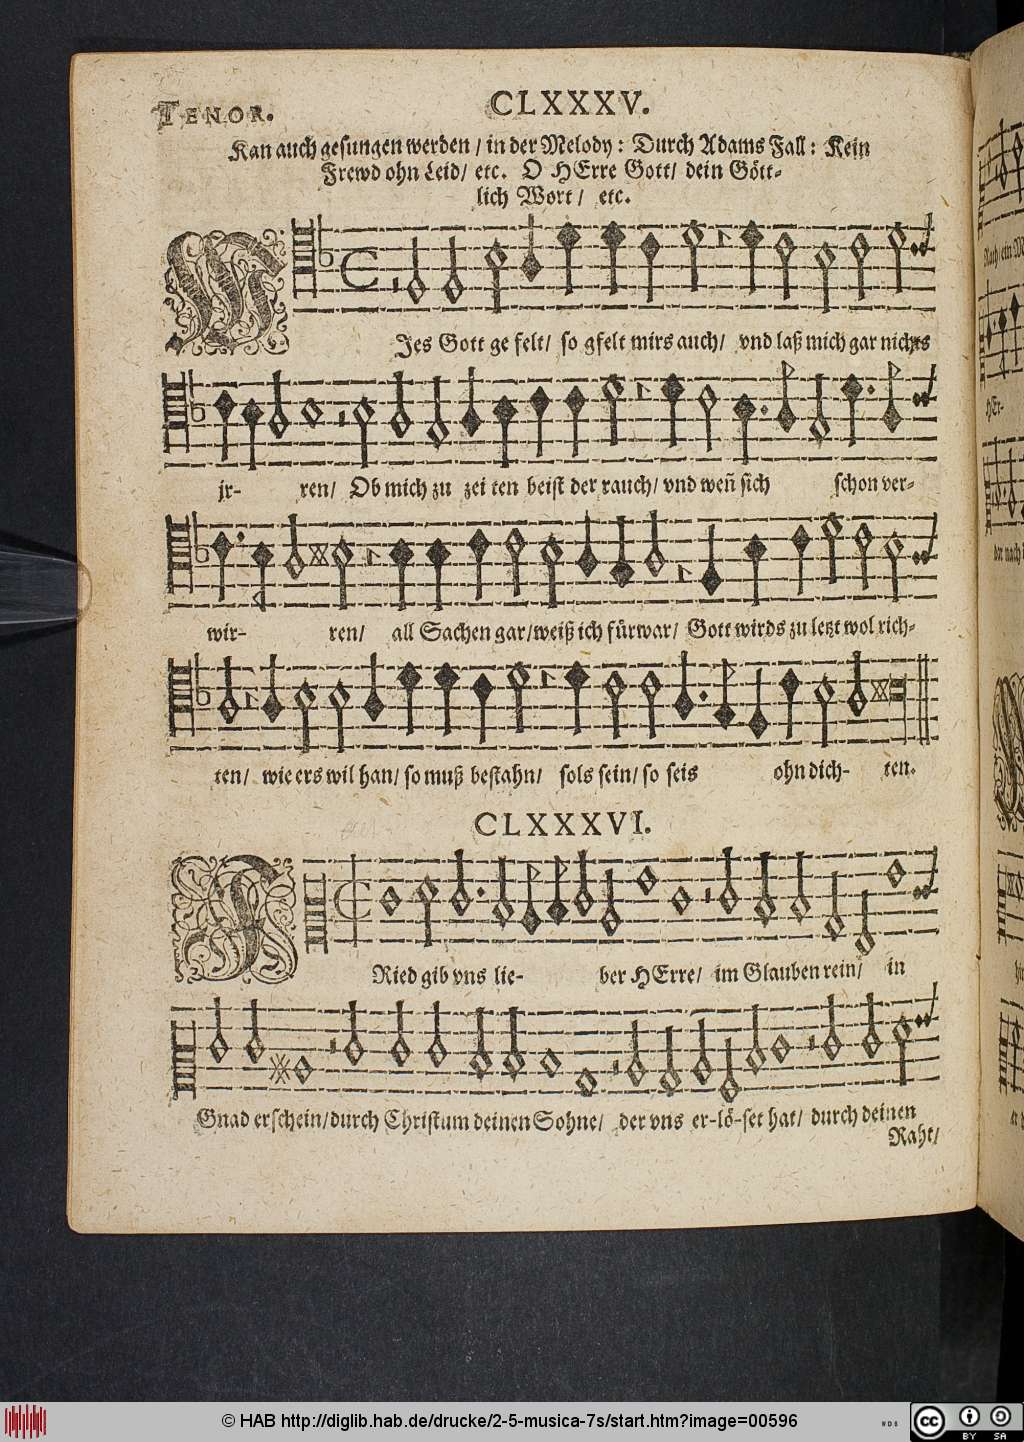 TENOR.
CLXXXV.
Kan auch gesungen werden / in der Melody: Durch Adams Fall: Kein
Frewd ohn Leid/ etc. O HErre Gott/ dein Gött-
lich Wort/ etc.
WJes Gott ge felt/ so gfelt mirs auch/ vnd laß mich gar nichts
jr- ren/ Ob mich zu zei ten beist der rauch/ vnd weñ sich schon ver-
wir- ren/ all Sachen gar/weiß ich fürwar/ Gott wirds zu letzt wol rich-
ten/ wie ers wil han/ so muß bestahn/ sols sein/ so seis ohn dich- ten.
CLXXXVI.
FRied gib vns lie- ber HErre/ im Glauben rein/ in
Gnad erschein/durch Christum deinen Sohne/ der vns er-lö-set hat/ durch deinen
Raht/
Nach
HEr-
der nach
© HAB http://diglib.hab.de/drucke/2-5-musica-7s/start.htm?image=00596
WDB
cc
BY SA